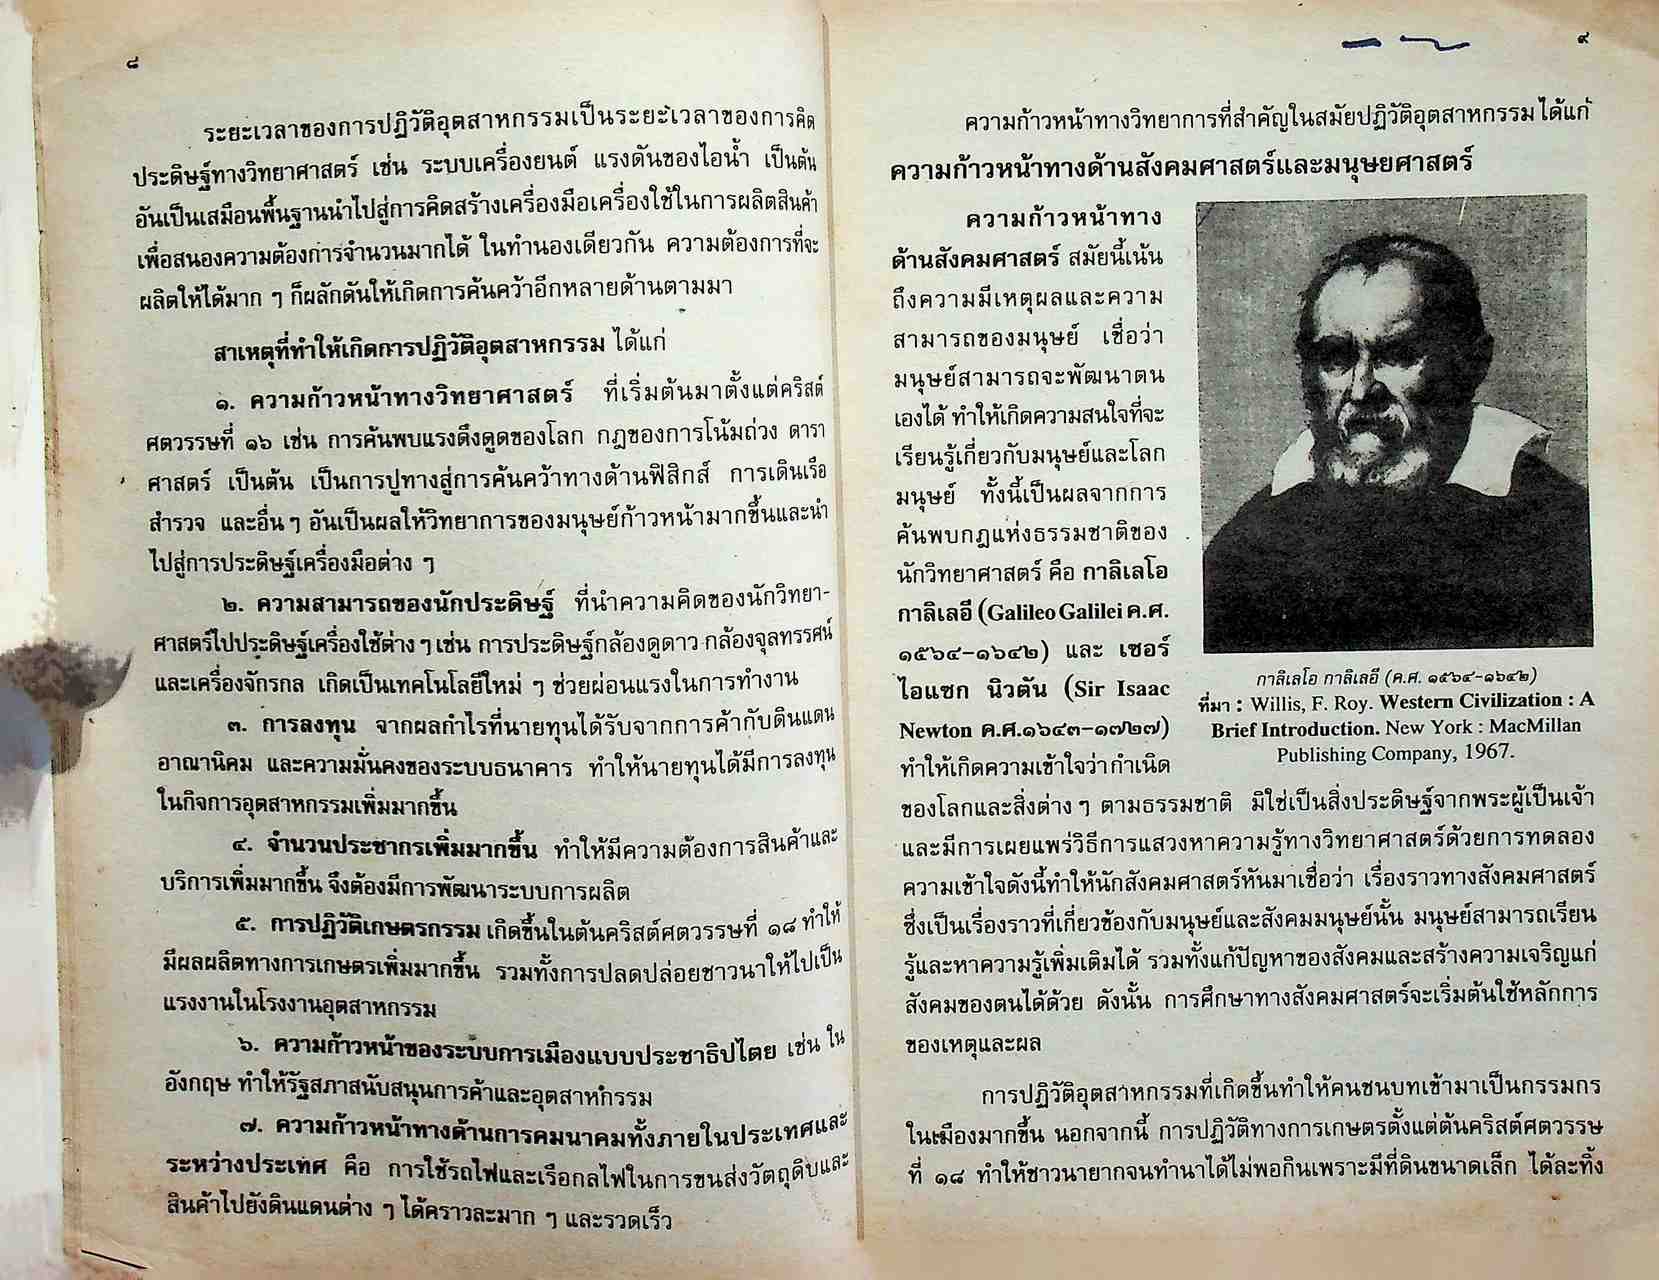 ๘
ระยะเวลาของการปฏิวัติอุตสาหกรรมเป็นระยะเวลาของการคิด
ประดิษฐ์ทางวิทยาศาสตร์ เช่น ระบบเครื่องยนต์ แรงดันของไอน้ำ เป็นต้น
อันเป็นเสมือนพื้นฐานนำไปสู่การคิดสร้างเครื่องมือเครื่องใช้ในการผลิตสินค้า
เพื่อสนองความต้องการจำนวนมากได้ ในทำนองเดียวกัน ความต้องการที่จะ
ผลิตให้ได้มาก ๆ ก็ผลักดันให้เกิดการค้นคว้าอีกหลายด้านตามมา
สาเหตุที่ทำให้เกิดการปฏิวัติอุตสาหกรรม ได้แก่
๑. ความก้าวหน้าทางวิทยาศาสตร์ ที่เริ่มต้นมาตั้งแต่คริสต์
ศตวรรษที่ ๑๖ เช่น การค้นพบแรงดึงดูดของโลก กฎของการโน้มถ่วง ดารา
ศาสตร์ เป็นต้น เป็นการปูทางสู่การค้นคว้าทางด้านฟิสิกส์ การเดินเรือ
สำรวจ และอื่น ๆ อันเป็นผลให้วิทยาการของมนุษย์ก้าวหน้ามากขึ้นและนำ
ไปสู่การประดิษฐ์เครื่องมือต่าง ๆ
๒. ความสามารถของนักประดิษฐ์ ที่นำความคิดของนักวิทยา-
ศาสตร์ไปประดิษฐ์เครื่องใช้ต่าง ๆ เช่น การประดิษฐ์กล้องดูดาว กล้องจุลทรรศน์
และเครื่องจักรกล เกิดเป็นเทคโนโลยีใหม่ ๆ ช่วยผ่อนแรงในการทำงาน
๓. การลงทุน จากผลกำไรที่นายทุนได้รับจากการค้ากับดินแดน
อาณานิคม และความมั่นคงของระบบธนาคาร ทำให้นายทุนได้มีการลงทุน
ในกิจการอุตสาหกรรมเพิ่มมากขึ้น
๔. จำนวนประชากรเพิ่มมากขึ้น ทำให้มีความต้องการสินค้าและ
บริการเพิ่มมากขึ้น จึงต้องมีการพัฒนาระบบการผลิต
๕. การปฏิวัติเกษตรกรรม เกิดขึ้นในต้นคริสต์ศตวรรษที่ ๑๘ ทำให้
มีผลผลิตทางการเกษตรเพิ่มมากขึ้น รวมทั้งการปลดปล่อยชาวนาให้ไปเป็น
แรงงานในโรงงานอุตสาหกรรม
๖. ความก้าวหน้าของระบบการเมืองแบบประชาธิปไตย เช่น ใน
อังกฤษ ทำให้รัฐสภาสนับสนุนการค้าและอุตสาหกรรม
๗. ความก้าวหน้าทางด้านการคมนาคมทั้งภายในประเทศและ
ระหว่างประเทศ คือ การใช้รถไฟและเรือกลไฟในการขนส่งวัตถุดิบและ
สินค้าไปยังดินแดนต่าง ๆ ได้คราวละมาก ๆ และรวดเร็ว
๙
ความก้าวหน้าทางวิทยาการที่สำคัญในสมัยปฏิวัติอุตสาหกรรม ได้แก่
ความก้าวหน้าทางด้านสังคมศาสตร์และมนุษยศาสตร์
ความก้าวหน้าทาง
ด้านสังคมศาสตร์ สมัยนี้เน้น
ถึงความมีเหตุผลและความ
สามารถของมนุษย์ เชื่อว่า
มนุษย์สามารถจะพัฒนาตน
เองได้ ทำให้เกิดความสนใจที่จะ
เรียนรู้เกี่ยวกับมนุษย์และโลก
มนุษย์ ทั้งนี้เป็นผลจากการ
ค้นพบกฎแห่งธรรมชาติของ
นักวิทยาศาสตร์ คือ กาลิเลโอ
กาลิเลอี (Galileo Galilei ค.ศ.
๑๕๖๔-๑๖๔๒) และ เซอร์
ไอแซก นิวตัน (Sir Isaac
Newton ค.ศ.๑๖๔๓-๑๗๒๗)
ทำให้เกิดความเข้าใจว่ากำเนิด
กาลิเลโอ กาลิเลอี (ค.ศ. ๑๕๖๔-๑๖๔๒)
ที่มา : Willis, F. Roy. Western Civilization : A
Brief Introduction. New York : MacMillan
Publishing Company, 1967.
ของโลกและสิ่งต่าง ๆ ตามธรรมชาติ มิใช่เป็นสิ่งประดิษฐ์จากพระผู้เป็นเจ้า
และมีการเผยแพร่วิธีการแสวงหาความรู้ทางวิทยาศาสตร์ด้วยการทดลอง
ความเข้าใจดังนี้ทำให้นักสังคมศาสตร์หันมาเชื่อว่า เรื่องราวทางสังคมศาสตร์
ซึ่งเป็นเรื่องราวที่เกี่ยวข้องกับมนุษย์และสังคมมนุษย์นั้น มนุษย์สามารถเรียน
รู้และหาความรู้เพิ่มเติมได้ รวมทั้งแก้ปัญหาของสังคมและสร้างความเจริญแก่
สังคมของตนได้ด้วย ดังนั้น การศึกษาทางสังคมศาสตร์จะเริ่มต้นใช้หลักการ
ของเหตุและผล
การปฏิวัติอุตสาหกรรมที่เกิดขึ้นทำให้คนชนบทเข้ามาเป็นกรรมกร
ในเมืองมากขึ้น นอกจากนี้ การปฏิวัติทางการเกษตรตั้งแต่ต้นคริสต์ศตวรรษ
ที่ ๑๘ ทำให้ชาวนายากจนทำนาได้ไม่พอกินเพราะมีที่ดินขนาดเล็ก ได้ละทิ้ง